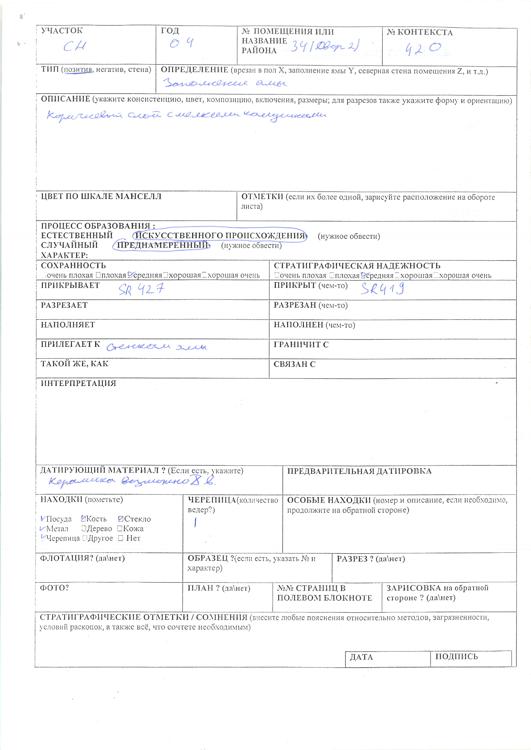 УЧАСТОК ГОД № ПОМЕЩЕНИЯ ИЛИ НАЗВАНИЕ РАЙОНА № КОНТЕКСТА
СН 04 34 (двор 2) 420
ТИП (позитив, негатив, стена) ОПРЕДЕЛЕНИЕ (врезан в пол X, заполнение ямы Y, северная стена помещения Z, и т.д.)
Заполнение ямы
ОПИСАНИЕ (укажите консистенцию, цвет, композицию, включения, размеры; для разрезов также укажите форму и ориентацию)
Коричневый слой с мелкими камушками
ЦВЕТ ПО ШКАЛЕ МАНСЕЛЛ ОТМЕТКИ (если их более одной, зарисуйте расположение на обороте
листа)
ПРОЦЕСС ОБРАЗОВАНИЯ :
ЕСТЕСТВЕННЫЙ ИСКУССТВЕННОГО ПРОИСХОЖДЕНИЯ (нужное обвести)
СЛУЧАЙНЫЙ ПРЕДНАМЕРЕННЫЙ (нужное обвести)
ХАРАКТЕР:
СОХРАННОСТЬ СТРАТИГРАФИЧЕСКАЯ НАДЕЖНОСТЬ
очень плохая плохая средняя хорошая хорошая очень очень плохая плохая средняя хорошая хорошая очень
ПРИКРЫВАЕТ SR 427 ПРИКРЫТ (чем-то) SR419
РАЗРЕЗАЕТ РАЗРЕЗАН (чем-то)
НАПОЛНЯЕТ НАПОЛНЕН (чем-то)
ПРИЛЕГАЕТ К стенкам ямы ГРАНИЧИТ С
ТАКОЙ ЖЕ, КАК СВЯЗАН С
ИНТЕРПРЕТАЦИЯ
ДАТИРУЮЩИЙ МАТЕРИАЛ ? (Если есть, укажите) ПРЕДВАРИТЕЛЬНАЯ ДАТИРОВКА
Керамика возможно в.
НАХОДКИ (пометьте) ЧЕРЕПИЦА(количество ведер?) ОСОБЫЕ НАХОДКИ (номер и описание, если необходимо,
продолжите на обратной стороне)
Посуда Кость Стекло 1
Метал Дерево Кожа
Черепица Другое Нет
ФЛОТАЦИЯ? (да\нет) ОБРАЗЕЦ ?(если есть, указать № и характер) РАЗРЕЗ ? (да\нет)
ФОТО? ПЛАН ? (да\нет) №№ СТРАНИЦ В ПОЛЕВОМ БЛОКНОТЕ ЗАРИСОВКА на обратной стороне ? (да\нет)
СТРАТИГРАФИЧЕСКИЕ ОТМЕТКИ / СОМНЕНИЯ (внесите любые пояснения относительно методов, загрязненности,
условий раскопок, а также всё, что сочтете необходимым)
ДАТА ПОДПИСЬ